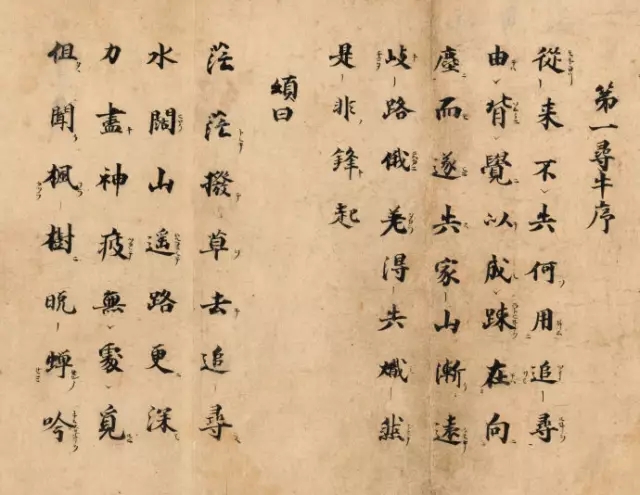 第一尋牛序
從来不失何用追尋
由背覺以成踈在向
塵而遂失家山漸遠
岐路俄差得失熾然
是非鋒起
頌曰
茫茫撥草去追尋
水闊山遥路更深
力盡神疲無處覓
但聞楓樹晩蝉吟